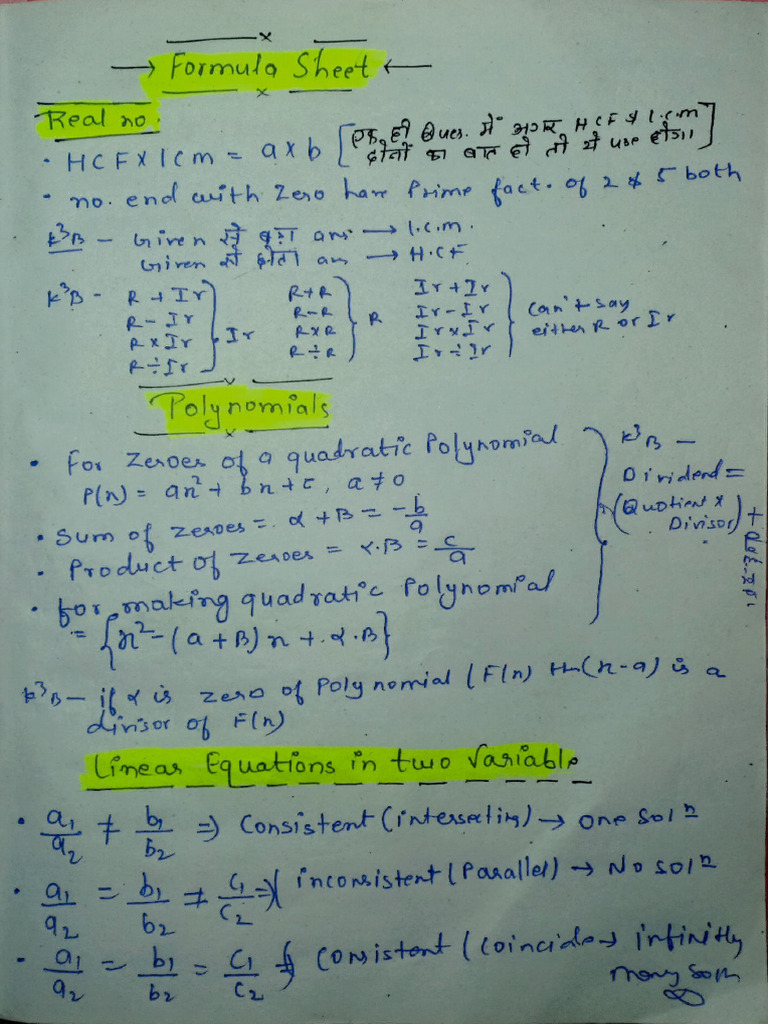 Formula Sheet
Real no.
• HCF x lCm = a x b [एक ही Ques. में अगर HCF & l.c.m
दोनों का बात हो तो ये use होगा।]
• no. end with Zero have Prime fact. of 2 & 5 both
k³B - Given से बड़ा ans → l.c.m.
Given से छोटा ans → H.C.F
k³B - R + Ir
R - Ir
R x Ir
R ÷ Ir
} Ir
R+R
R-R
R x R
R ÷ R
} R
Ir + Ir
Ir - Ir
Ir x Ir
Ir ÷ Ir
} Can't say
either R or Ir
Polynomials
• For Zeroes of a quadratic Polynomial
P(n) = an² + bn + c, a ≠ 0
• Sum of zeroes = α + B = -b/a
• Product of Zeroes = α.B = c/a
• for making quadratic Polynomial
= {x² - (a + B) n + α.B}
k³B -
Dividend =
(Quotient x
Divisor) +
k³B - if α is zero of Polynomial (F(n) (n-a) is a
divisor of F(n)
Linear Equations in two Variable
• a₁/a₂ ≠ b₁/b₂ ⇒ Consistent (intersecting) → one solⁿ
• a₁/a₂ = b₁/b₂ ≠ c₁/c₂ ⇒ inconsistent (Parallel) → No solⁿ
• a₁/a₂ = b₁/b₂ = c₁/c₂ ⇒ Consistent (coincide → infinitly
many soln